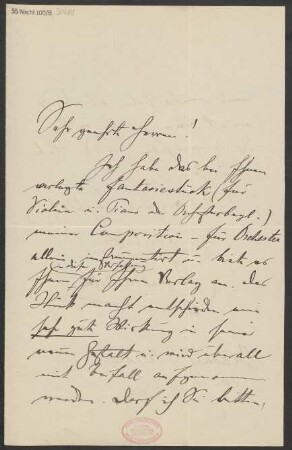 55 Nachl 100/B
Sehr geehrte Herren!
Ich habe das bei Ihnen
verlegte Fantasiestück (für
Violine u. Piano od. Orchesterbegl.)
meiner Composition – für Orchester
allein instrumentirt u. biete es
in dieser
Ihnen für Ihren Verlag an. Das
Stück macht entschieden eine
sehr gute Wirkung in seiner
neuen Gestalt u. wird überall
mit Beifall aufgenommen
werden. Darf ich Sie bitten,